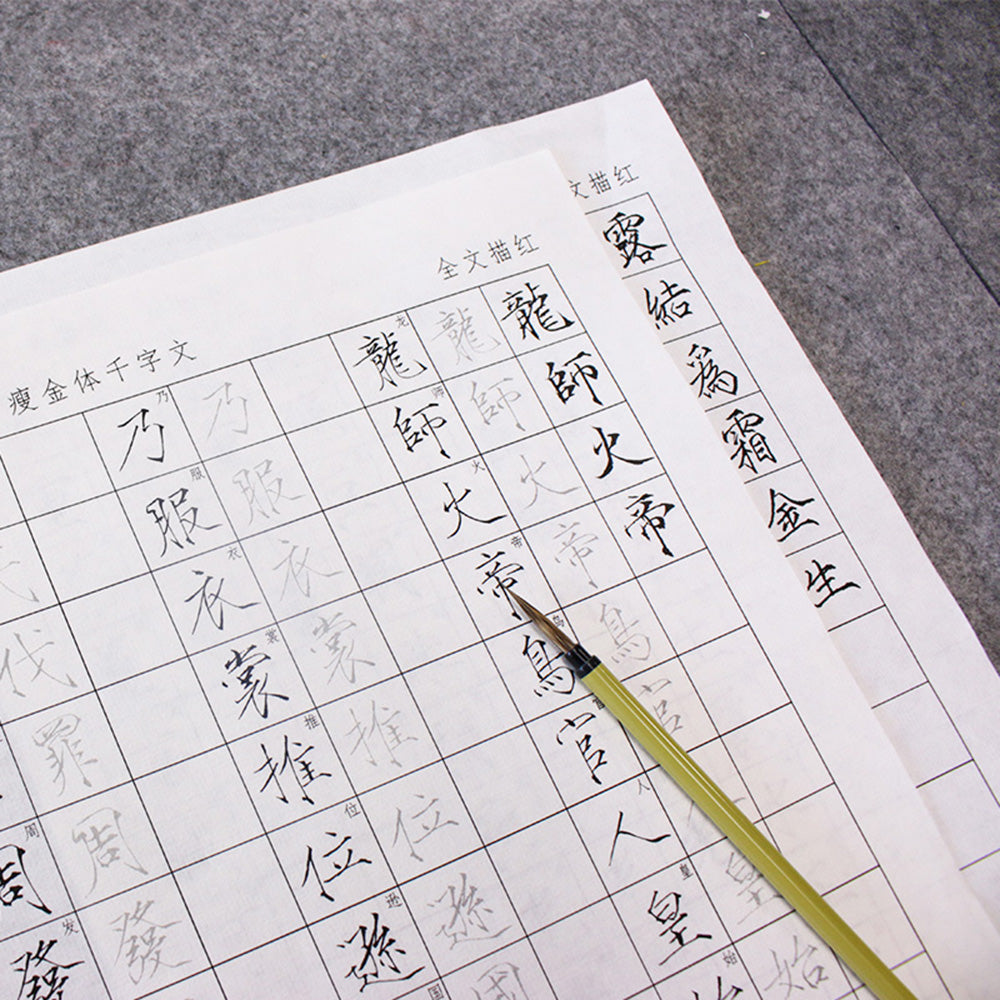 文描红
露結為霜金生
全文描红
瘦金体千字文
龍師火帝
龍師火帝鳥官人皇始
龙师火帝鸟官人皇始
龍師火帝鳥官人皇始
乃服衣裳推位遜國
乃服衣裳推位逊国
乃服衣裳推位遜
伐罪周發
周发
周發